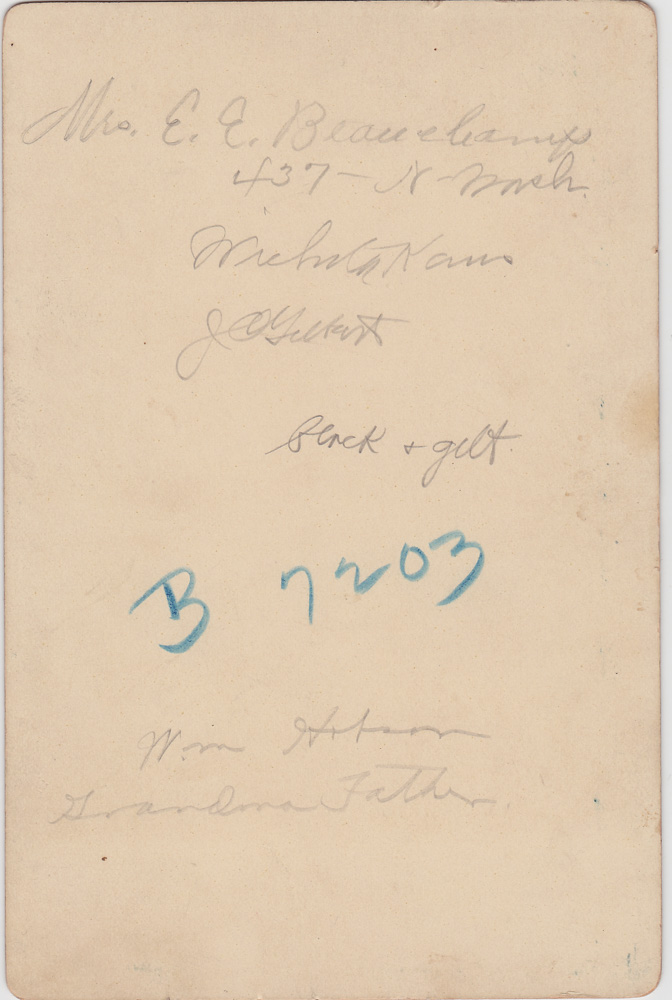 Mrs. E. E. Beauchamp
437 - N Wash.
Wichita Kans
J O Gilbert
black + gilt
B 7203
Wm Hobson
Grandma Father